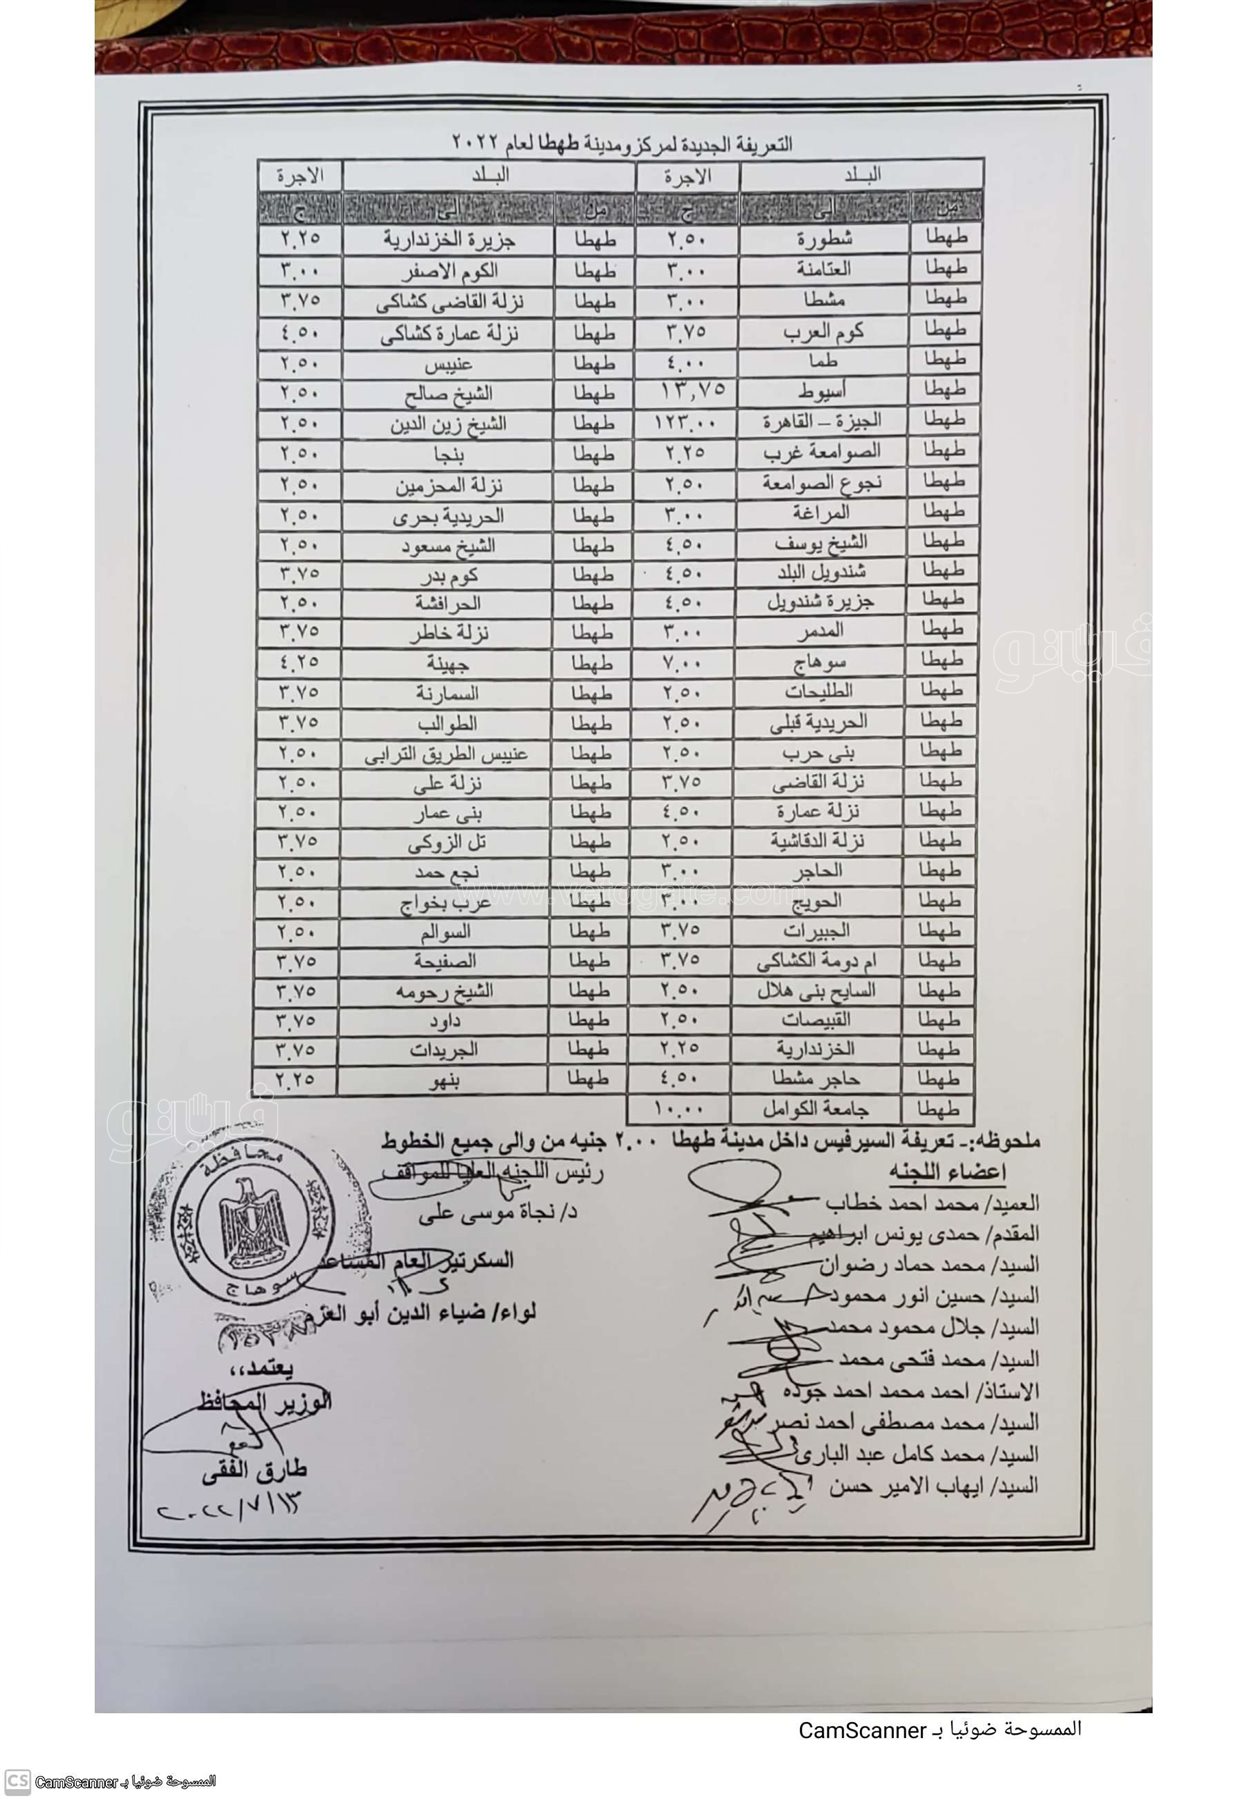 التعريفة الجديدة لمركز ومدينة طهطا لعام ٢٠٢٢
البلد الاجرة البلد الاجرة
من إلى ج من إلى ج
طهطا شطورة ٢.٥٠ طهطا جزيرة الخزندارية ٢.٢٥
طهطا العتامنة ٣.٠٠ طهطا الكوم الاصفر ٣.٠٠
طهطا مشطا ٣.٠٠ طهطا نزلة القاضى كشاكى ٣.٧٥
طهطا كوم العرب ٣.٧٥ طهطا نزلة عمارة كشاكى ٤.٥٠
طهطا طما ٤.٠٠ طهطا عنيبس ٢.٥٠
طهطا أسيوط ١٣,٧٥ طهطا الشيخ صالح ٢.٥٠
طهطا الجيزة – القاهرة ١٢٣.٠٠ طهطا الشيخ زين الدين ٢.٥٠
طهطا الصوامعة غرب ٢.٢٥ طهطا بنجا ٢.٥٠
طهطا نجوع الصوامعة ٢.٥٠ طهطا نزلة المحزمين ٢.٥٠
طهطا المراغة ٣.٠٠ طهطا الحريدية بحرى ٢.٥٠
طهطا الشيخ يوسف ٤.٥٠ طهطا الشيخ مسعود ٢.٥٠
طهطا شندويل البلد ٤.٥٠ طهطا كوم بدر ٣.٧٥
طهطا جزيرة شندويل ٤.٥٠ طهطا الحرافشة ٢.٥٠
طهطا المدمر ٣.٠٠ طهطا نزلة خاطر ٣.٧٥
طهطا سوهاج ٧.٠٠ طهطا جهينة ٤.٢٥
طهطا الطليحات ٢.٥٠ طهطا السمارنة ٣.٧٥
طهطا الحريدية قبلى ٢.٥٠ طهطا الطوالب ٣.٧٥
طهطا بنى حرب ٢.٥٠ طهطا عنيبس الطريق الترابى ٢.٥٠
طهطا نزلة القاضى ٣.٧٥ طهطا نزلة على ٢.٥٠
طهطا نزلة عمارة ٤.٥٠ طهطا بنى عمار ٢.٥٠
طهطا نزلة الدقاشية ٢.٥٠ طهطا تل الزوكى ٣.٧٥
طهطا الحاجر ٣.٠٠ طهطا نجع حمد ٢.٥٠
طهطا الحويج ٣.٠٠ طهطا عرب بخواج ٢.٥٠
طهطا الجبيرات ٣.٧٥ طهطا السوالم ٢.٥٠
طهطا ام دومة الكشاكى ٣.٧٥ طهطا الصفيحة ٣.٧٥
طهطا السايح بنى هلال ٢.٥٠ طهطا الشيخ رحومه ٣.٧٥
طهطا القبيصات ٢.٥٠ طهطا داود ٣.٧٥
طهطا الخزندارية ٢.٢٥ طهطا الجريدات ٣.٧٥
طهطا حاجر مشطا ٤.٥٠ طهطا بنهو ٢.٢٥
طهطا جامعة الكوامل ١٠.٠٠
ملحوظه:- تعريفة السيرفيس داخل مدينة طهطا ٢.٠٠ جنيه من والى جميع الخطوط
أعضاء اللجنه
العميد/ محمد احمد خطاب
المقدم/ حمدى يونس ابراهيم
السيد/ محمد حماد رضوان
السيد/ حسين انور محمود
السيد/ جلال محمود محمد
السيد/ محمد فتحى محمد
الاستاذ/ احمد محمد احمد جوده
السيد/ محمد مصطفى احمد نصر
السيد/ محمد كامل عبد البارى
السيد/ ايهاب الامير حسن
رئيس اللجنه العليا للمواقف
د/ نجاة موسى على
السكرتير العام المساعد
لواء/ ضياء الدين أبو العزم
محافظة
سوهاج
يعتمد،،
الوزير المحافظ
طارق الفقى
٢٠٢٢/٧/١٣
فيتو
فيتو
الممسوحة ضوئيا بـ CamScanner
CS الممسوحة ضوئيا بـ CamScanner